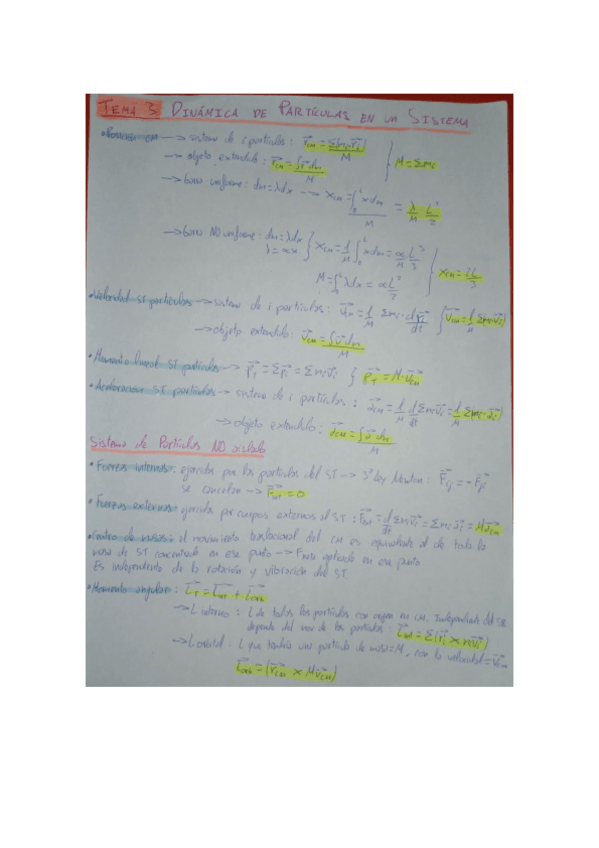 TEMA 3 DINÁMICA DE PARTÍCULAS EN UN SISTEMA
• Posición CM → sistema de i partículas: r⃗CM = Σ(mi·r⃗i)/M } M = Σmi
→ objeto extendido: r⃗CM = ∫r⃗ dm/M
→ barra uniforme: dm = λdx → xCM = ∫₀ᴸ x dm/M = λ/M L²/2
→ barra NO uniforme: dm = λdx λ = αx } xCM = 1/M ∫₀ᴸ x dm = α/M L³/3
M = ∫₀ᴸ λdx = α L²/2 } xCM = 2L/3
• Velocidad ST partículas → sistema de i partículas: v⃗CM = 1/M Σmi · dr⃗i/dt } v⃗CM = 1/M Σ(mi·v⃗i)
→ objeto extendido: v⃗CM = ∫v⃗ dm/M
• Momento lineal ST partículas → p⃗T = Σp⃗i = Σmi v⃗i } p⃗T = M·v⃗CM
• Aceleración ST partículas → sistema de i partículas: a⃗CM = 1/M d/dt Σmi v⃗i = 1/M Σ(mi·a⃗i)
→ objeto extendido: a⃗CM = ∫a⃗ dm/M
Sistema de Partículas NO aislado
• Fuerzas internas: ejercidas por las partículas del ST → 3ª Ley Newton: F⃗ij = -F⃗ji
se cancelan → F⃗int = 0
• Fuerzas externas: ejercida por cuerpos externos al ST: F⃗ext = d/dt Σmi v⃗i = Σmi a⃗i = M a⃗CM
• Centro de masas: el movimiento traslacional del CM es equivalente al de toda la
masa de ST concentrada en ese punto → Fneta aplicada en ese punto
Es independiente de la rotación y vibración del ST
• Momento angular: L⃗T = L⃗int + L⃗orb
→ L interno: L de todas las partículas con origen en CM. Independiente del SR
depende del mov de las partículas: L⃗int = Σ(r⃗i × mv⃗i)
→ L orbital: L que tendría una partícula de masa = M, con la velocidad = v⃗CM
L⃗orb = (r⃗CM × M v⃗CM)